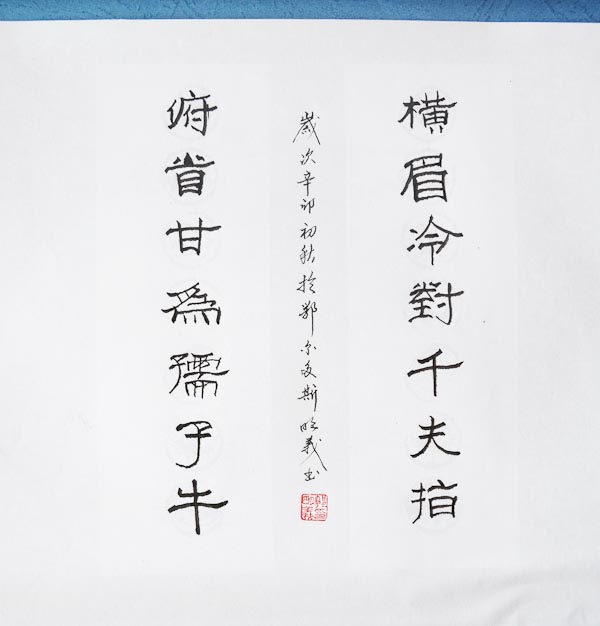 橫眉冷對千夫指
俯首甘爲孺子牛
歲次辛卯初秋於鄂尔多斯義书